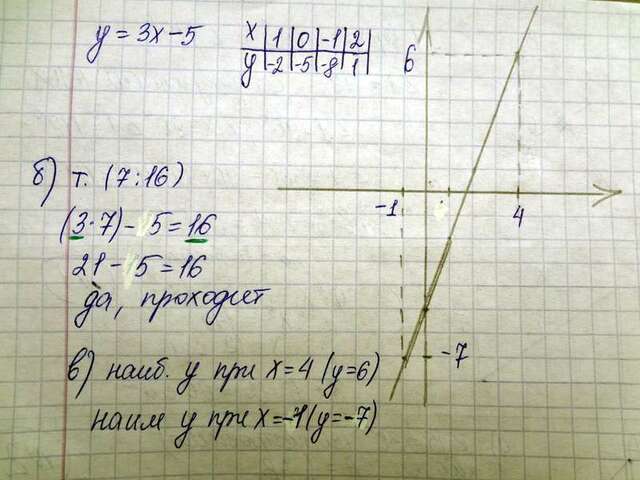 y = 3x - 5
x | 1 | 0 | -1 | 2 |
y | -2 | -5 | -8 | 1 |
6
-1
4
-7
б) т. (7:16)
(3·7) - 5 = 16
21 - 5 = 16
да, проходит
в) наиб. y при x = 4 (y = 6)
наим y при x = -1 (y = -7)